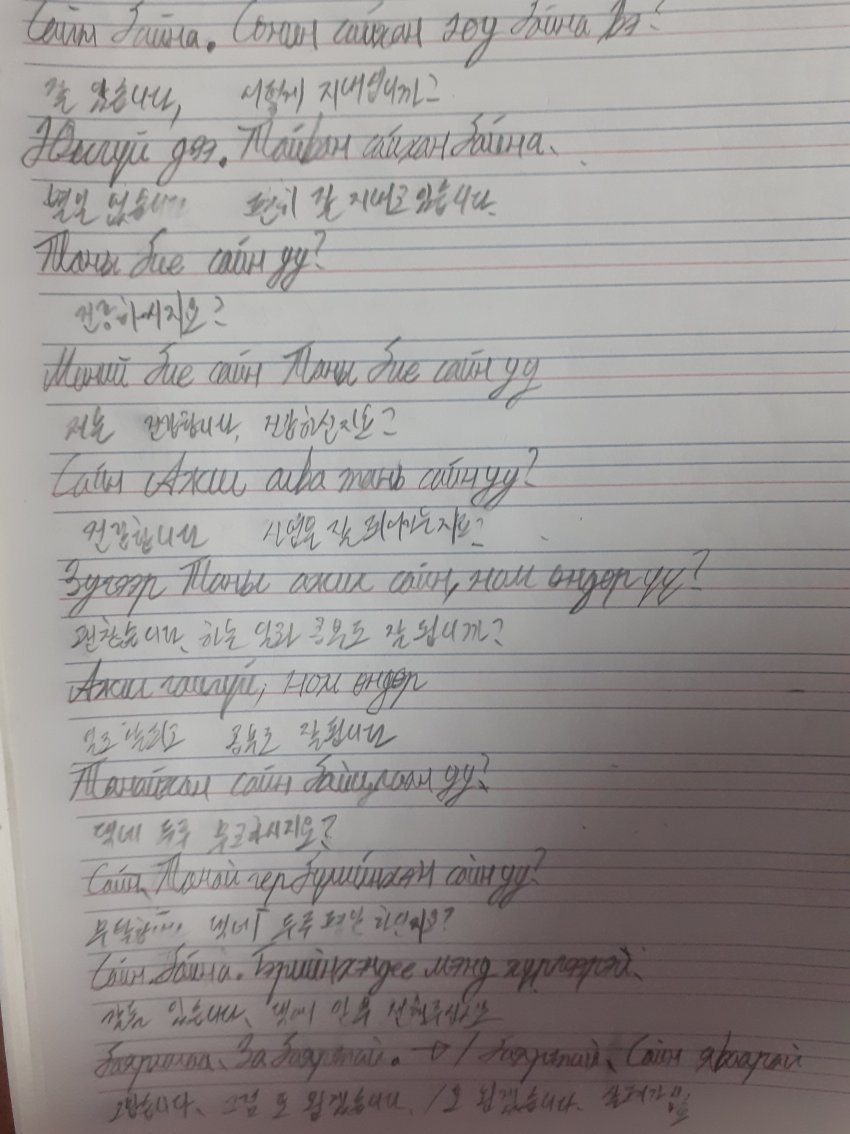 Сайн байна. Сонин сайхан юу байна вэ?
잘 있습니다, 어떻게 지내십니까?
Юмгүй дээ. Тайван сайхан байна.
별일 없습니다 편히 잘 지내고 있습니다.
Таны бие сайн уу?
건강하시지요?
Миний бие сайн Таны бие сайн уу
저는 건강합니다, 건강하신지요?
Сайн Ажил сайн уу?
건강합니다 사업은 잘 되어가는지요?
Зүгээр Таны ажил сайн, ном өндөр үү?
괜찮습니다, 하는 일과 공부도 잘 됩니까?
Ажил ном өндөр
일도 잘되고 공부도 잘됩니다
Танайхан сайн байцгаан уу?
댁네 두루 무고하시지요?
Сайн, Танай гэр бүлийнхэн сайн уу?
무탈합니다 댁네 두루 평안하신지요?
Сайн байна. Гэрийнхэндээ мэнд хүргээрэй.
잘들 있습니다, 댁에 안부 전해주십시오
Баярлалаа, За баяртай. → / Баяртай, Сайн яваарай
고맙습니다, 그럼 또 뵙겠습니다. / 또 뵙겠습니다.